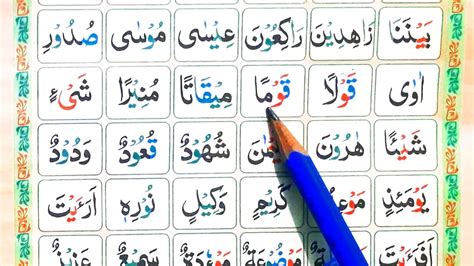 بَيْنَنَا زَاهِدِيْنَ رَاكِعُوْنَ عِيْسٰى مُوْسٰى صُدُوْرِ
اٰوٰى قَوْلًا قَوْمًا مِيْقَاتًا مُنِيْرًا شَىْءٍ
شَيْئًا هٰرُوْنَ شُهُوْدٌ قُعُوْدٌ وَدُوْدٌ
يَوْمَئِذٍ كَرِيْمٍ وَكِيْلٍ نُوْرِهٖ اَرَءَيْتَ
اَفَرَءَيْتَ مَوْضُوْعَةٌ سَمِيْعٌ عَزِيْزٌ